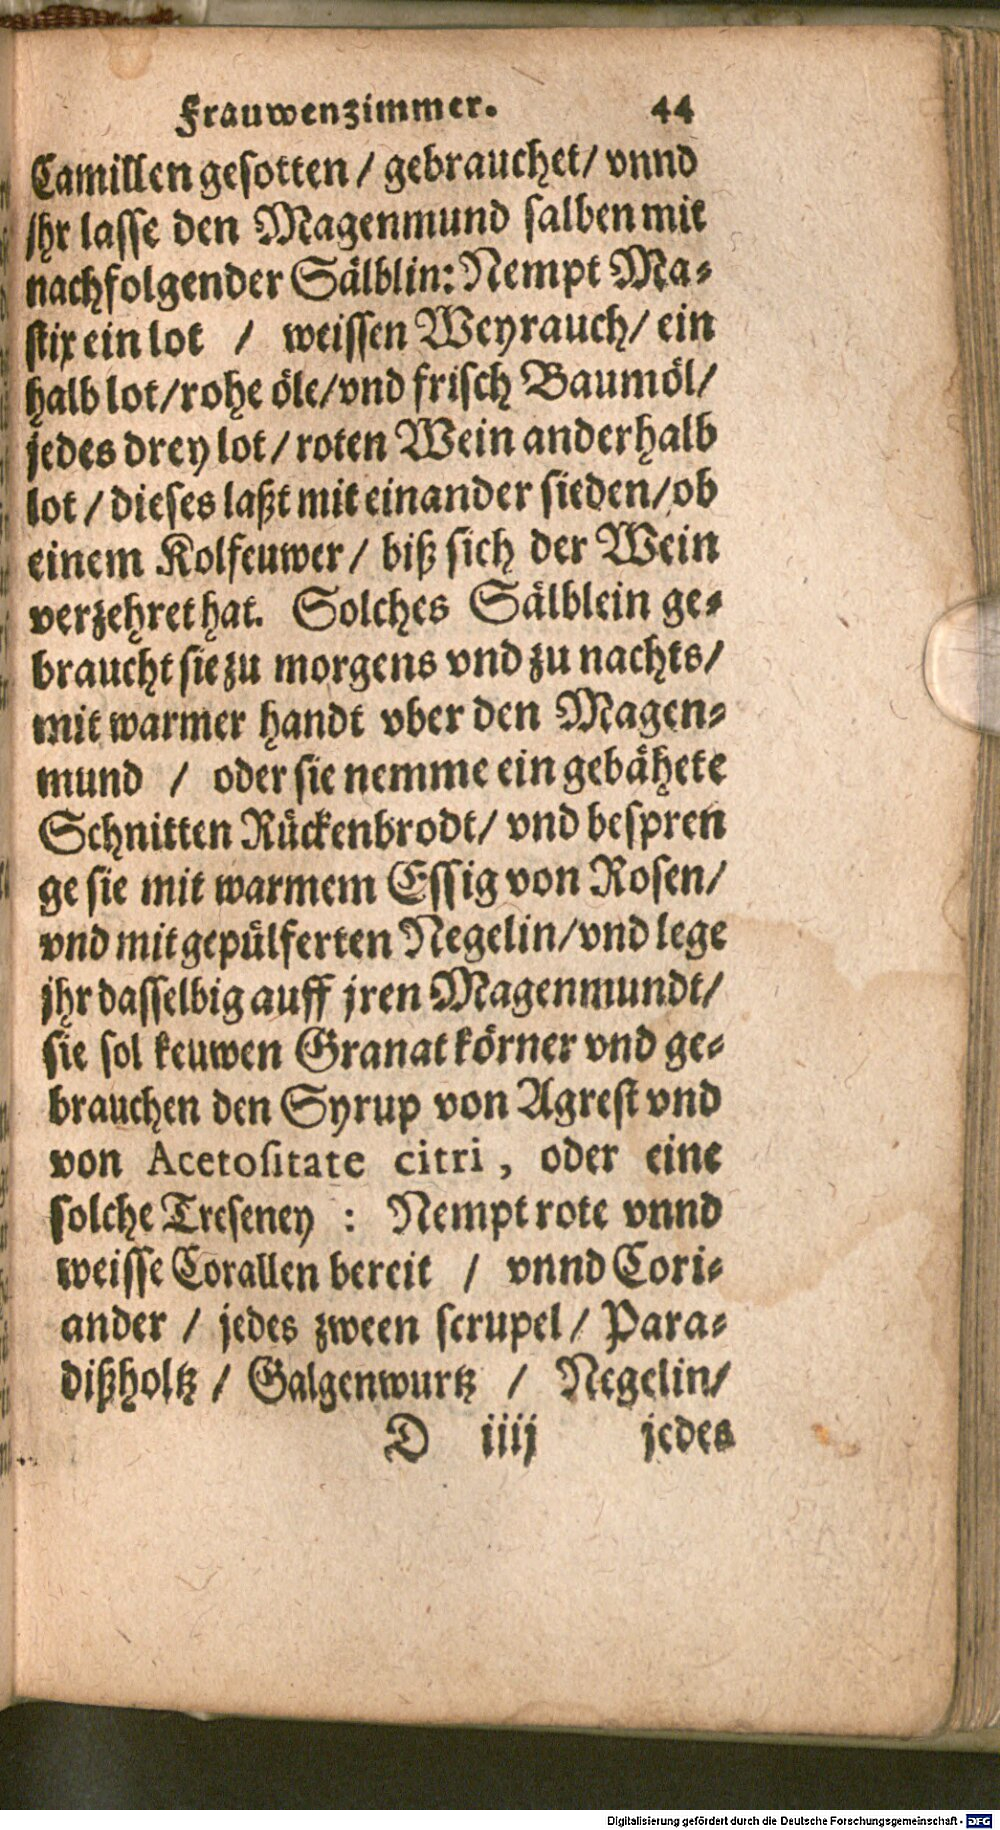 Frauwenzimmer. 44
Camillen gesotten / gebrauchet / vnnd
jhr lasse den Magenmund salben mit
nachfolgender Sälblin: Nempt Ma-
stix ein lot / weissen Weyrauch / ein
halb lot / rohe öle / vnd frisch Baumöl /
jedes drey lot / roten Wein anderhalb
lot / dieses laßt mit einander sieden / ob
einem Kolfeuwer / biß sich der Wein
verzehret hat. Solches Sälblein ge-
braucht sie zu morgens vnd zu nachts /
mit warmer handt vber den Magen-
mund / oder sie nemme ein gebähete
Schnitten Rückenbrodt / vnd bespren
ge sie mit warmem Essig von Rosen /
vnd mit gepülferten Negelin / vnd lege
jhr dasselbig auff jren Magenmundt /
sie sol keuwen Granatkörner vnd ge-
brauchen den Syrup von Agrest vnd
von Acetositate citri, oder eine
solche Treseney : Nempt rote vnnd
weisse Corallen bereit / vnnd Cori-
ander / jedes zween scrupel / Para-
dißholtz / Galgenwurtz / Negelin /
D iiij jedes
Digitalisierung gefördert durch die Deutsche Forschungsgemeinschaft - DFG